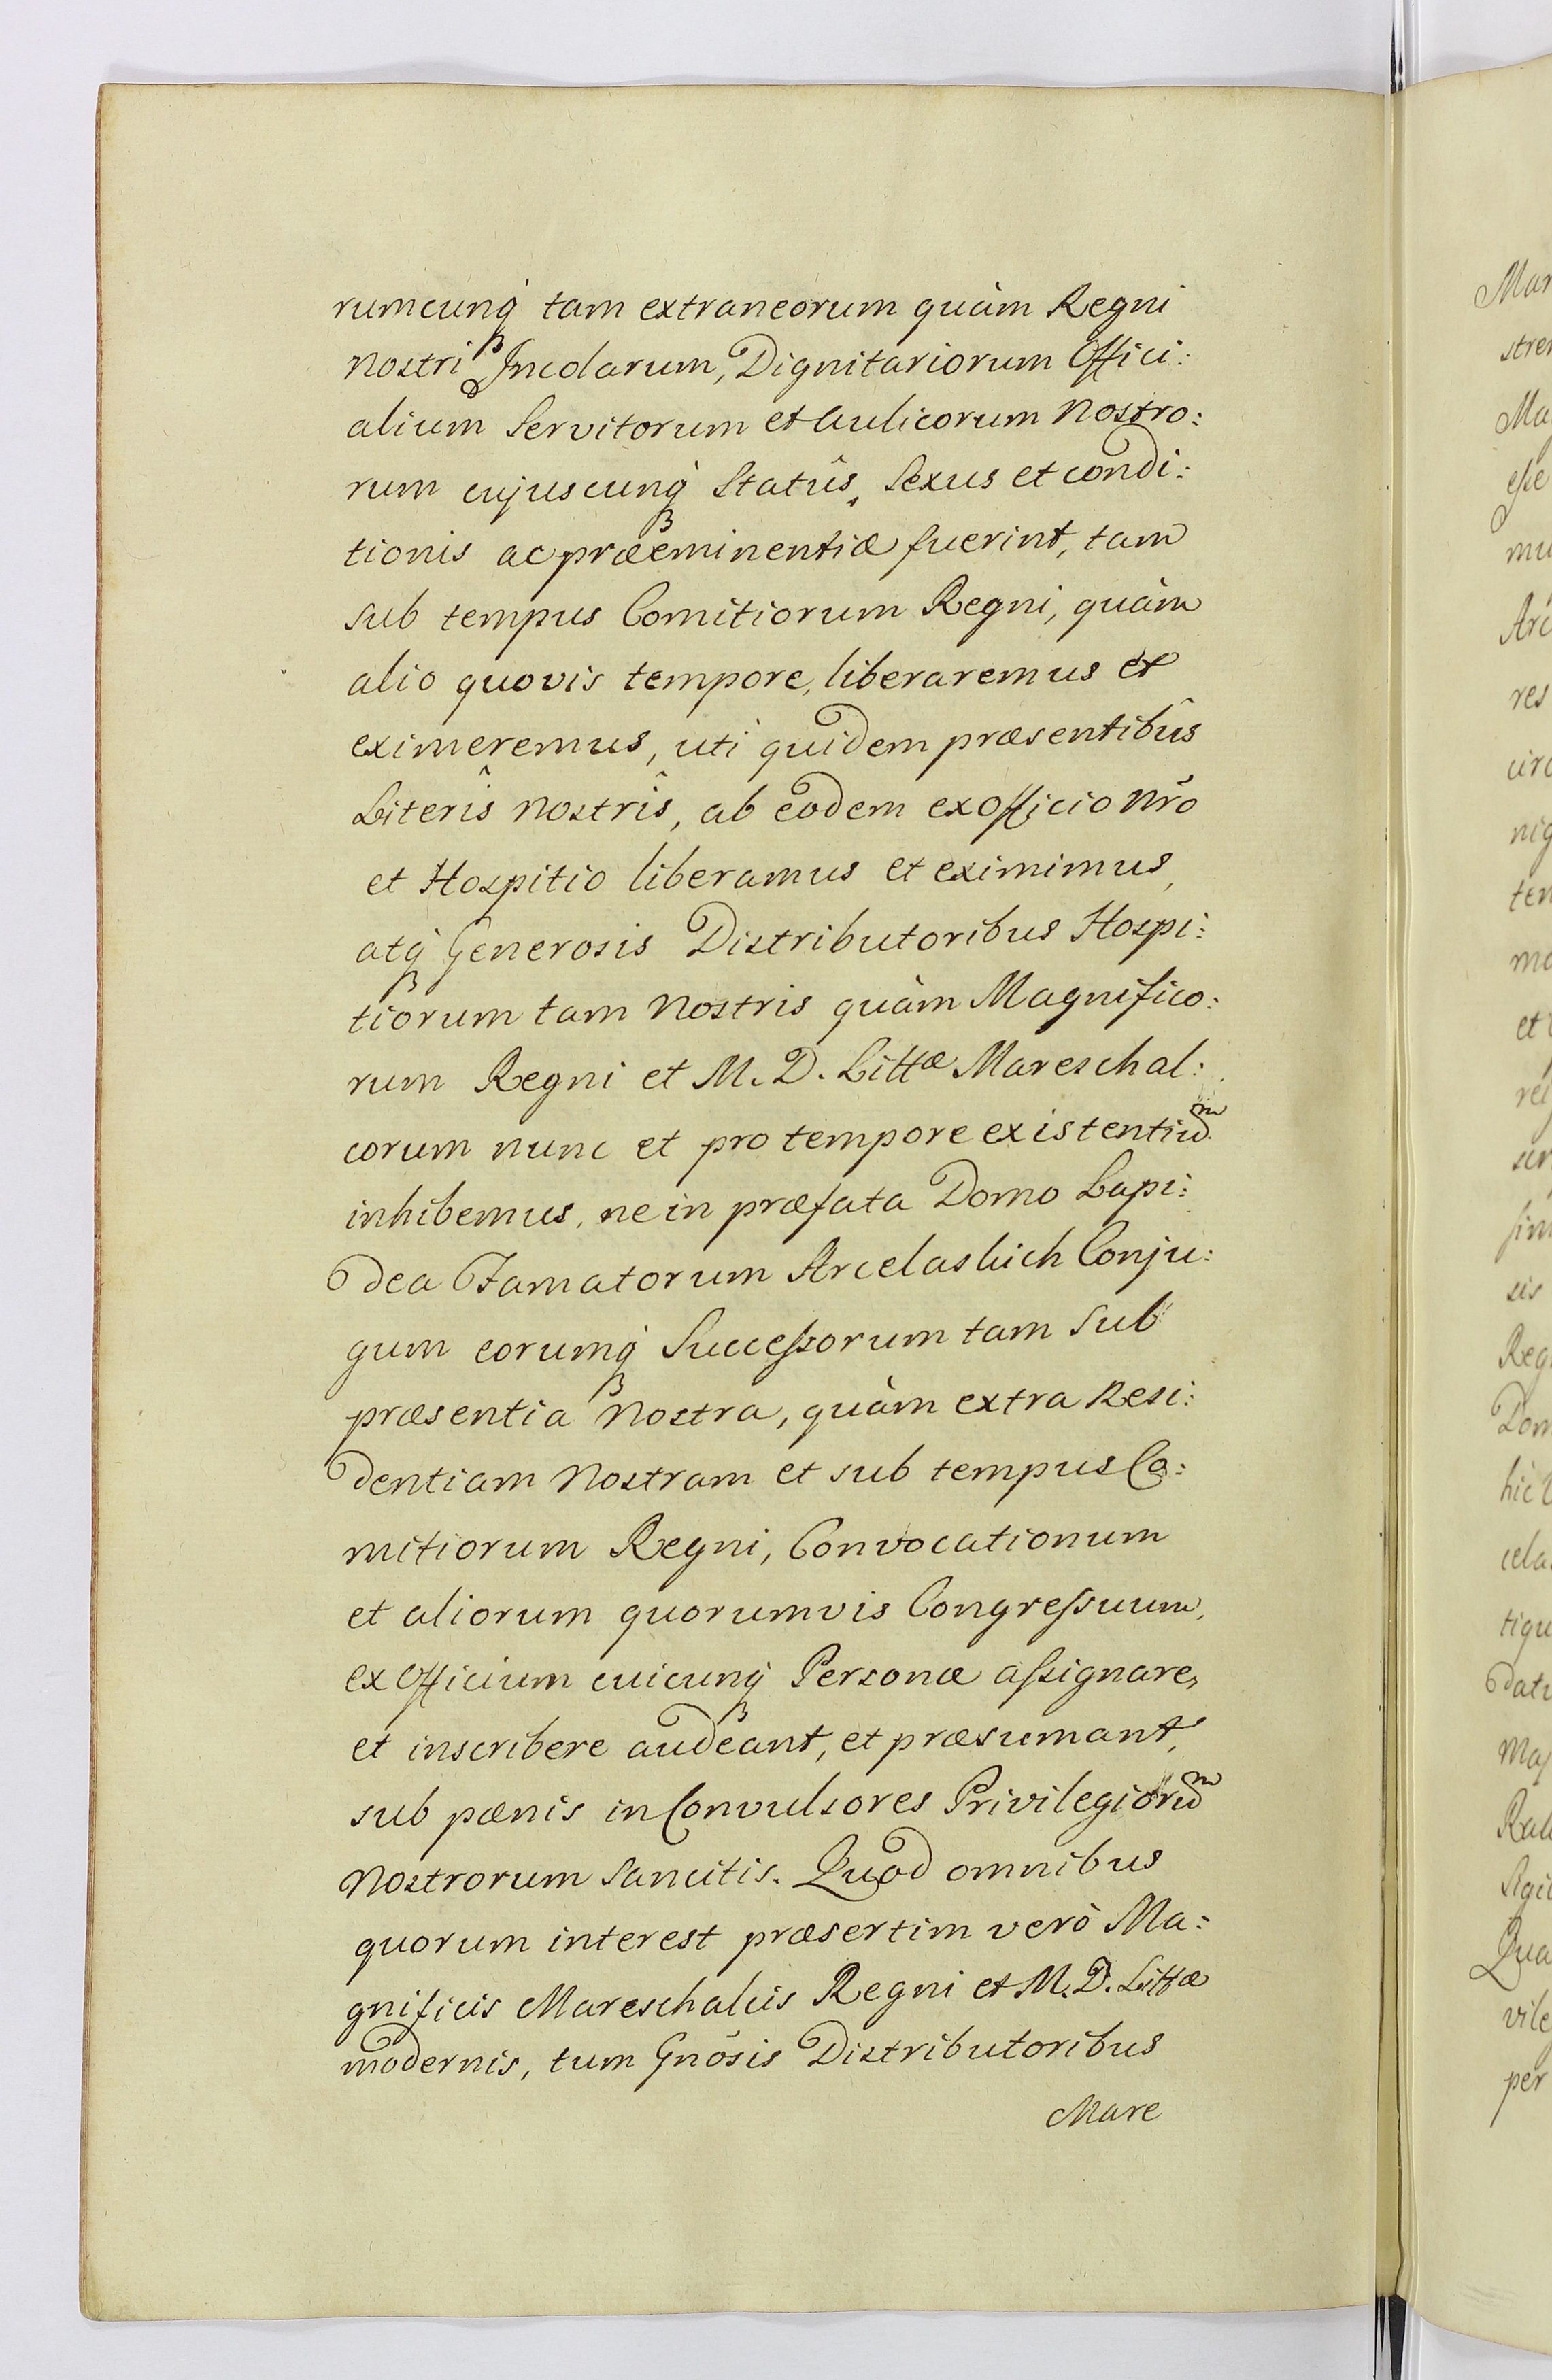 rumcunq́ tam extraneorum quàm Regni
nostri Incolarum, Dignitariorum Offici:
alium Servitorum et Aulicorum Nostro:
rum cujuscunq́ Statûs, Sexus et condi:
tionis ac præeminentiæ fuerint, tam
sub tempus Comitiorum Regni, quàm
alio quovis tempore, liberaremus et
eximeremus, uti quidem præsentibûs
Literîs nostrîs, ab eodem exofficio Nro
et Hospitio liberamus et eximimus,
atq́ Generosis Distributoribus Hospi:
tiorum tam Nostris quàm Magnifico:
rum Regni et M. D. Littæ Mareschal:
corum nunc et pro tempore existentium
inhibemus, ne in præfata Domo Lapi:
dea Famatorum Arcelaskich Conju:
gum eorumq́ Successorum tam sub
præsentia Nostra, quàm extra Resi:
dentiam Nostram et sub tempus Co:
mitiorum Regni, Convocationum
et aliorum quorumvis Congressuum,
exofficium cuicunq́ Personæ assignare,
et inscribere audeant, et præsumant,
sub pænis in Convulsores Privilegiorum
Nostrorum sancitis. Quod omnibus
quorum interest præsertim verò Ma:
gnificis Mareschalcis Regni et M. D. Littæ
modernis, tum Gnosis Distributoribus
Mare